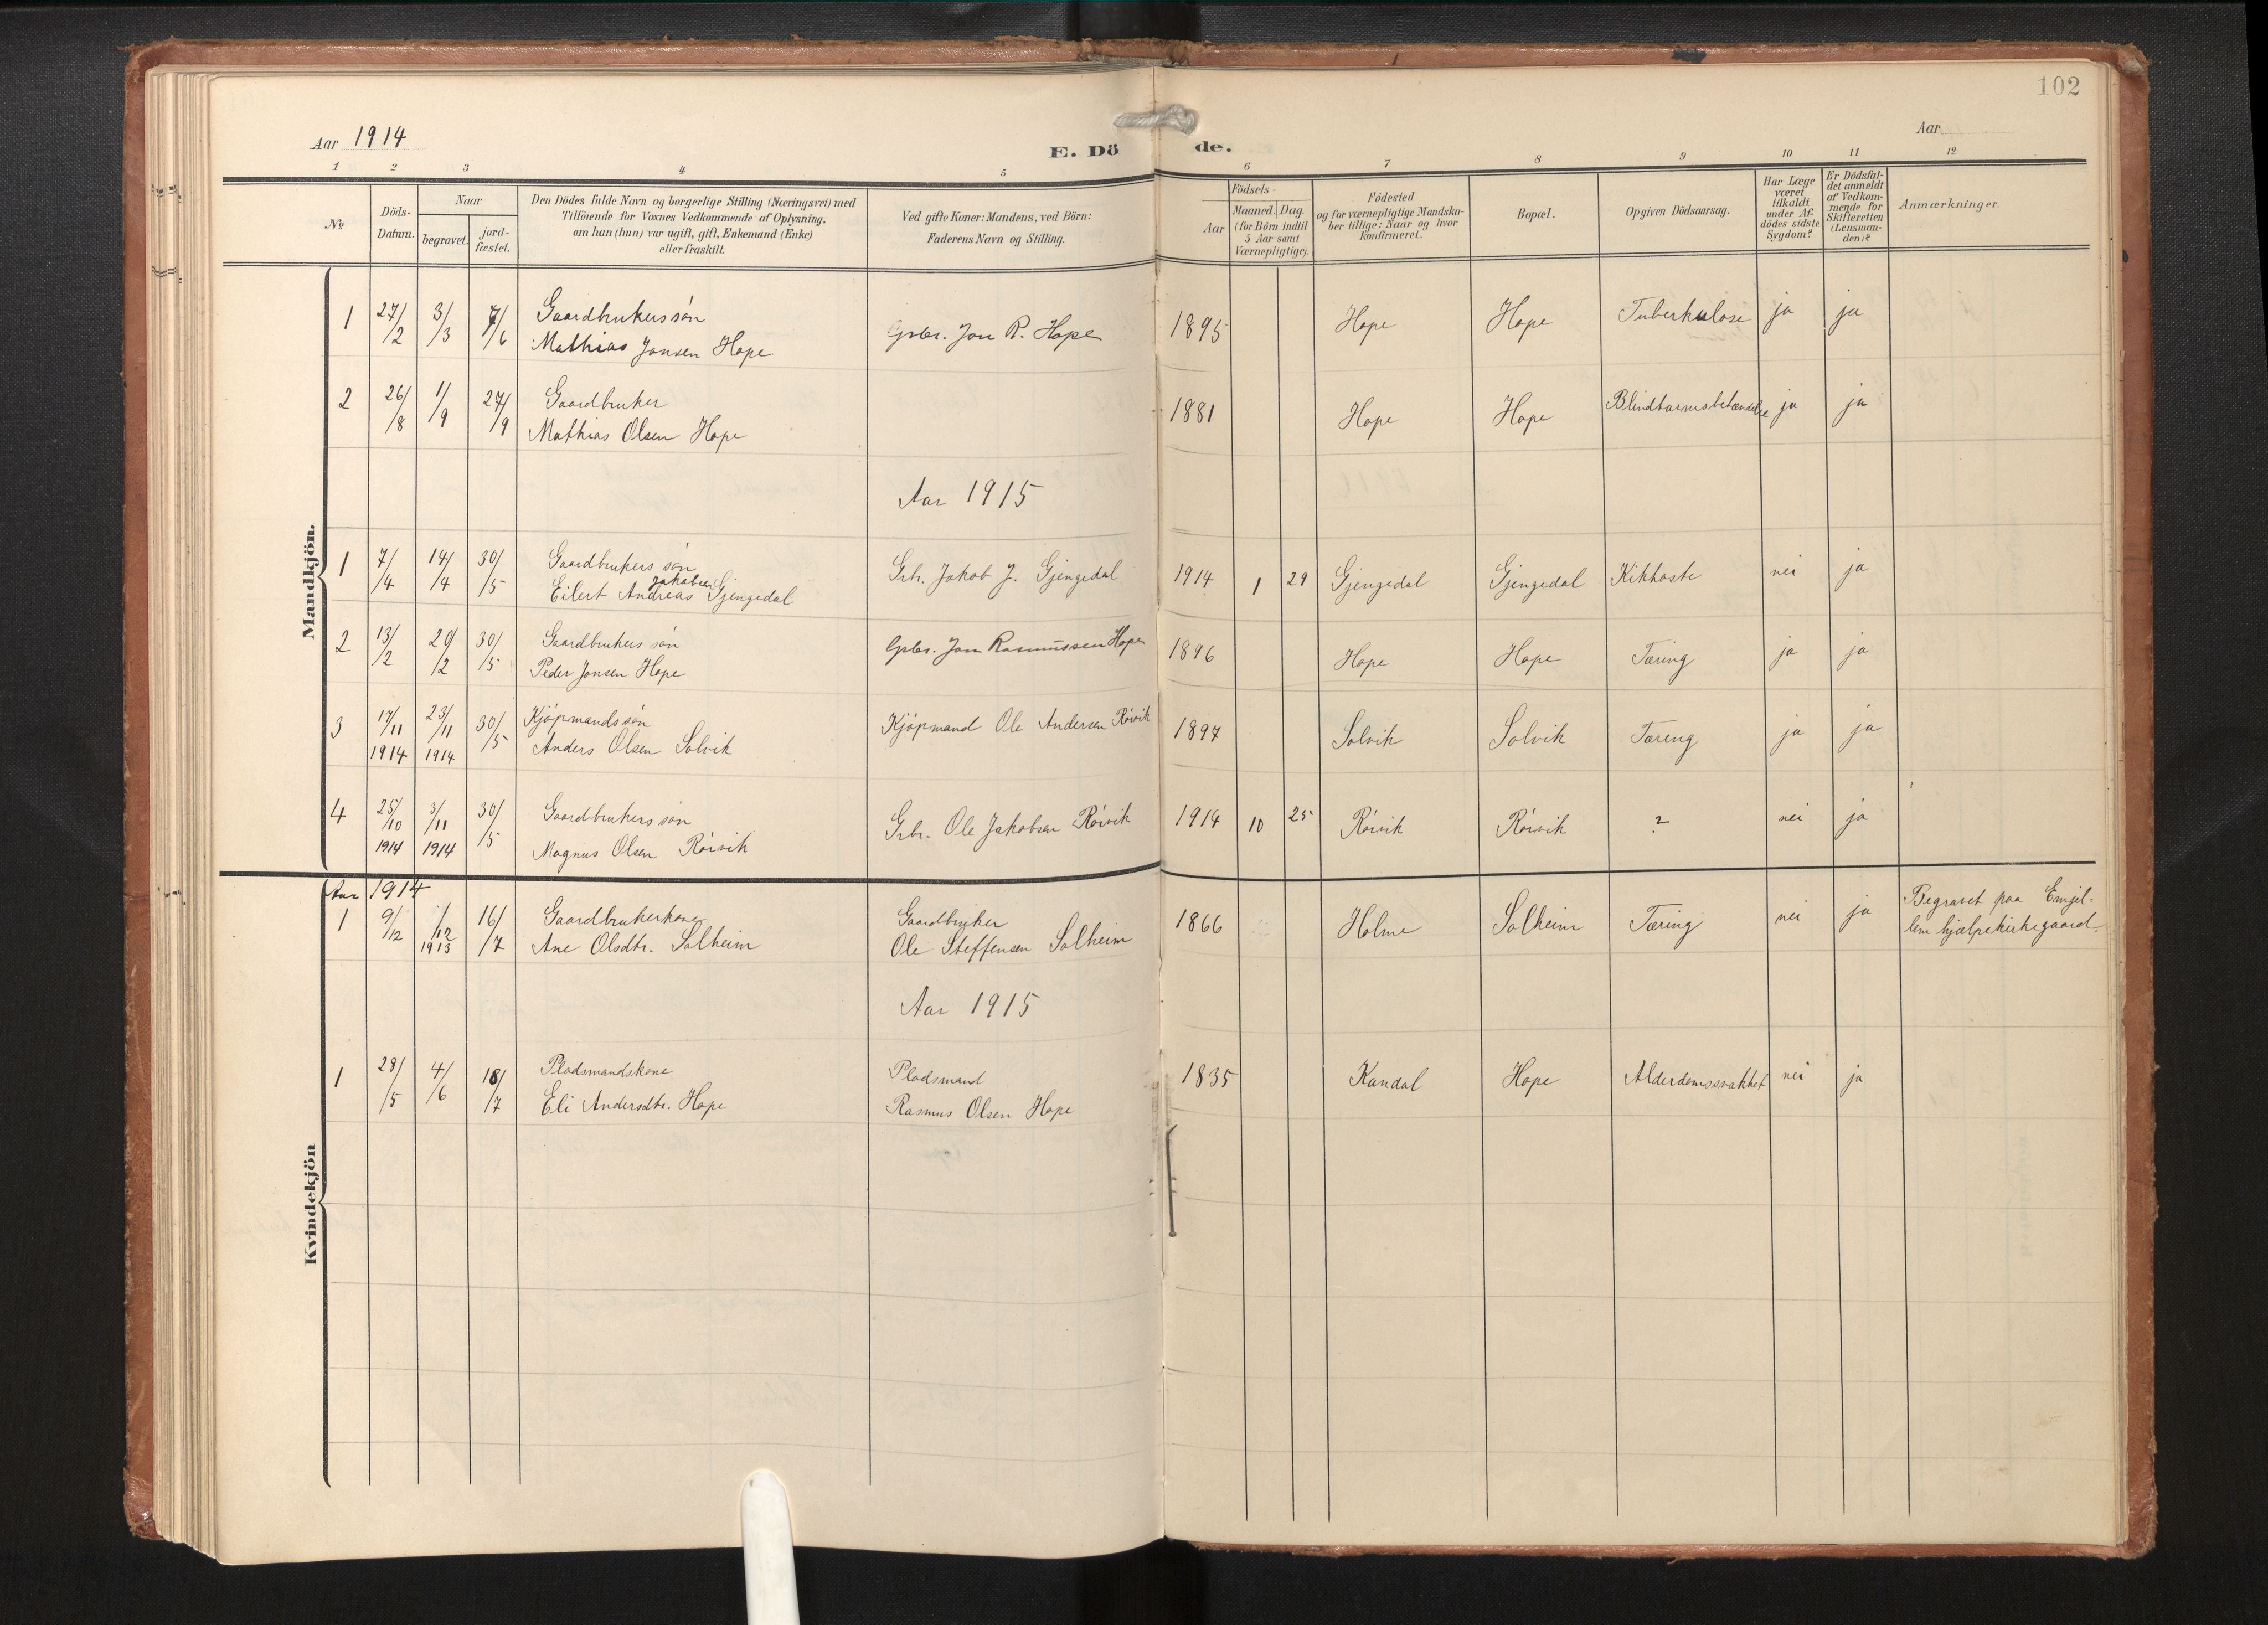 102
Aar 1914
E. Dö de.
Aar
1 2 3 4 5 6 7 8 9 10 11 12
No
Döds-
Datum.
Naar
begravet.
jord-
fæstet.
Den Dödes fulde Navn og borgerlige Stilling (Næringsvei) med
Tilföiende for Voxnes Vedkommende af Oplysning,
om han (hun) var ugift, gift, Enkemand (Enke)
eller fraskilt.
Ved gifte Koner: Mandens, ved Börn:
Faderens Navn og Stilling.
Födsels-
Aar
Maaned. Dag.
(for Börn indtil
5 Aar samt
Værnepligtige).
Födested
og for værnepligtige Mandska-
ber tillige: Naar og hvor
konfirmeret.
Bopæl.
Opgiven Dödsaarsag.
Har Læge
været
tilkaldt
under Af-
dödes sidste
Sygdom?
Er Dödsfal-
det anmeldt
af Vedkom-
mende for
Skifteretten
(Lensman-
den)?
Anmærkninger.
Mandkjön.
1 27/2 3/3 7/6 Gaardbrukerssøn
Mathias Jonsen Hope
Gbr. Jon R. Hope 1895 Hope Hope Tuberkulose ja ja
2 26/8 1/9 27/9 Gaardbruker
Mathias Olsen Hope
1881 Hope Hope Blindtarmsbetændelse ja ja
Aar 1915
1 7/4 14/4 30/5 Gaardbrukers søn
Eilert Andreas Jakobsen Gjengedal
Grbr. Jakob J. Gjengedal 1914 1 29 Gjengedal Gjengedal Kikhoste nei ja
2 13/2 20/2 30/5 Gaardbrukers søn
Peder Jonsen Hope
Gbr. Jon Rasmussen Hope 1896 Hope Hope Tæring ja ja
3 17/11 1914 23/11 1914 30/5 Kjøpmandssøn
Anders Olsen Solvik
Kjøpmand Ole Andersen Rørvik 1897 Solvik Solvik Tæring ja ja
4 25/10 1914 3/11 1914 30/5 Gaardbrukers søn
Magnus Olsen Rørvik
Grbr. Ole Jakobsen Rørvik 1914 10 25 Rørvik Rørvik ? nei ja
Kvindekjön
Aar 1914
1 9/12 /12 1913 16/7 Gaardbrukerkone
Ane Olsdtr. Solheim
Gaardbruker
Ole Steffensen Solheim
1866 Holme Solheim Tæring nei ja
Begravet paa
hjælpekirkegaard.
Aar 1915
1 28/5 4/6 18/7 Pladsmandskone
Eli Andersdtr. Hope
Pladsmand
Rasmus Olsen Hope
1835 Kandal Hope Alderdomssvakhet nei ja